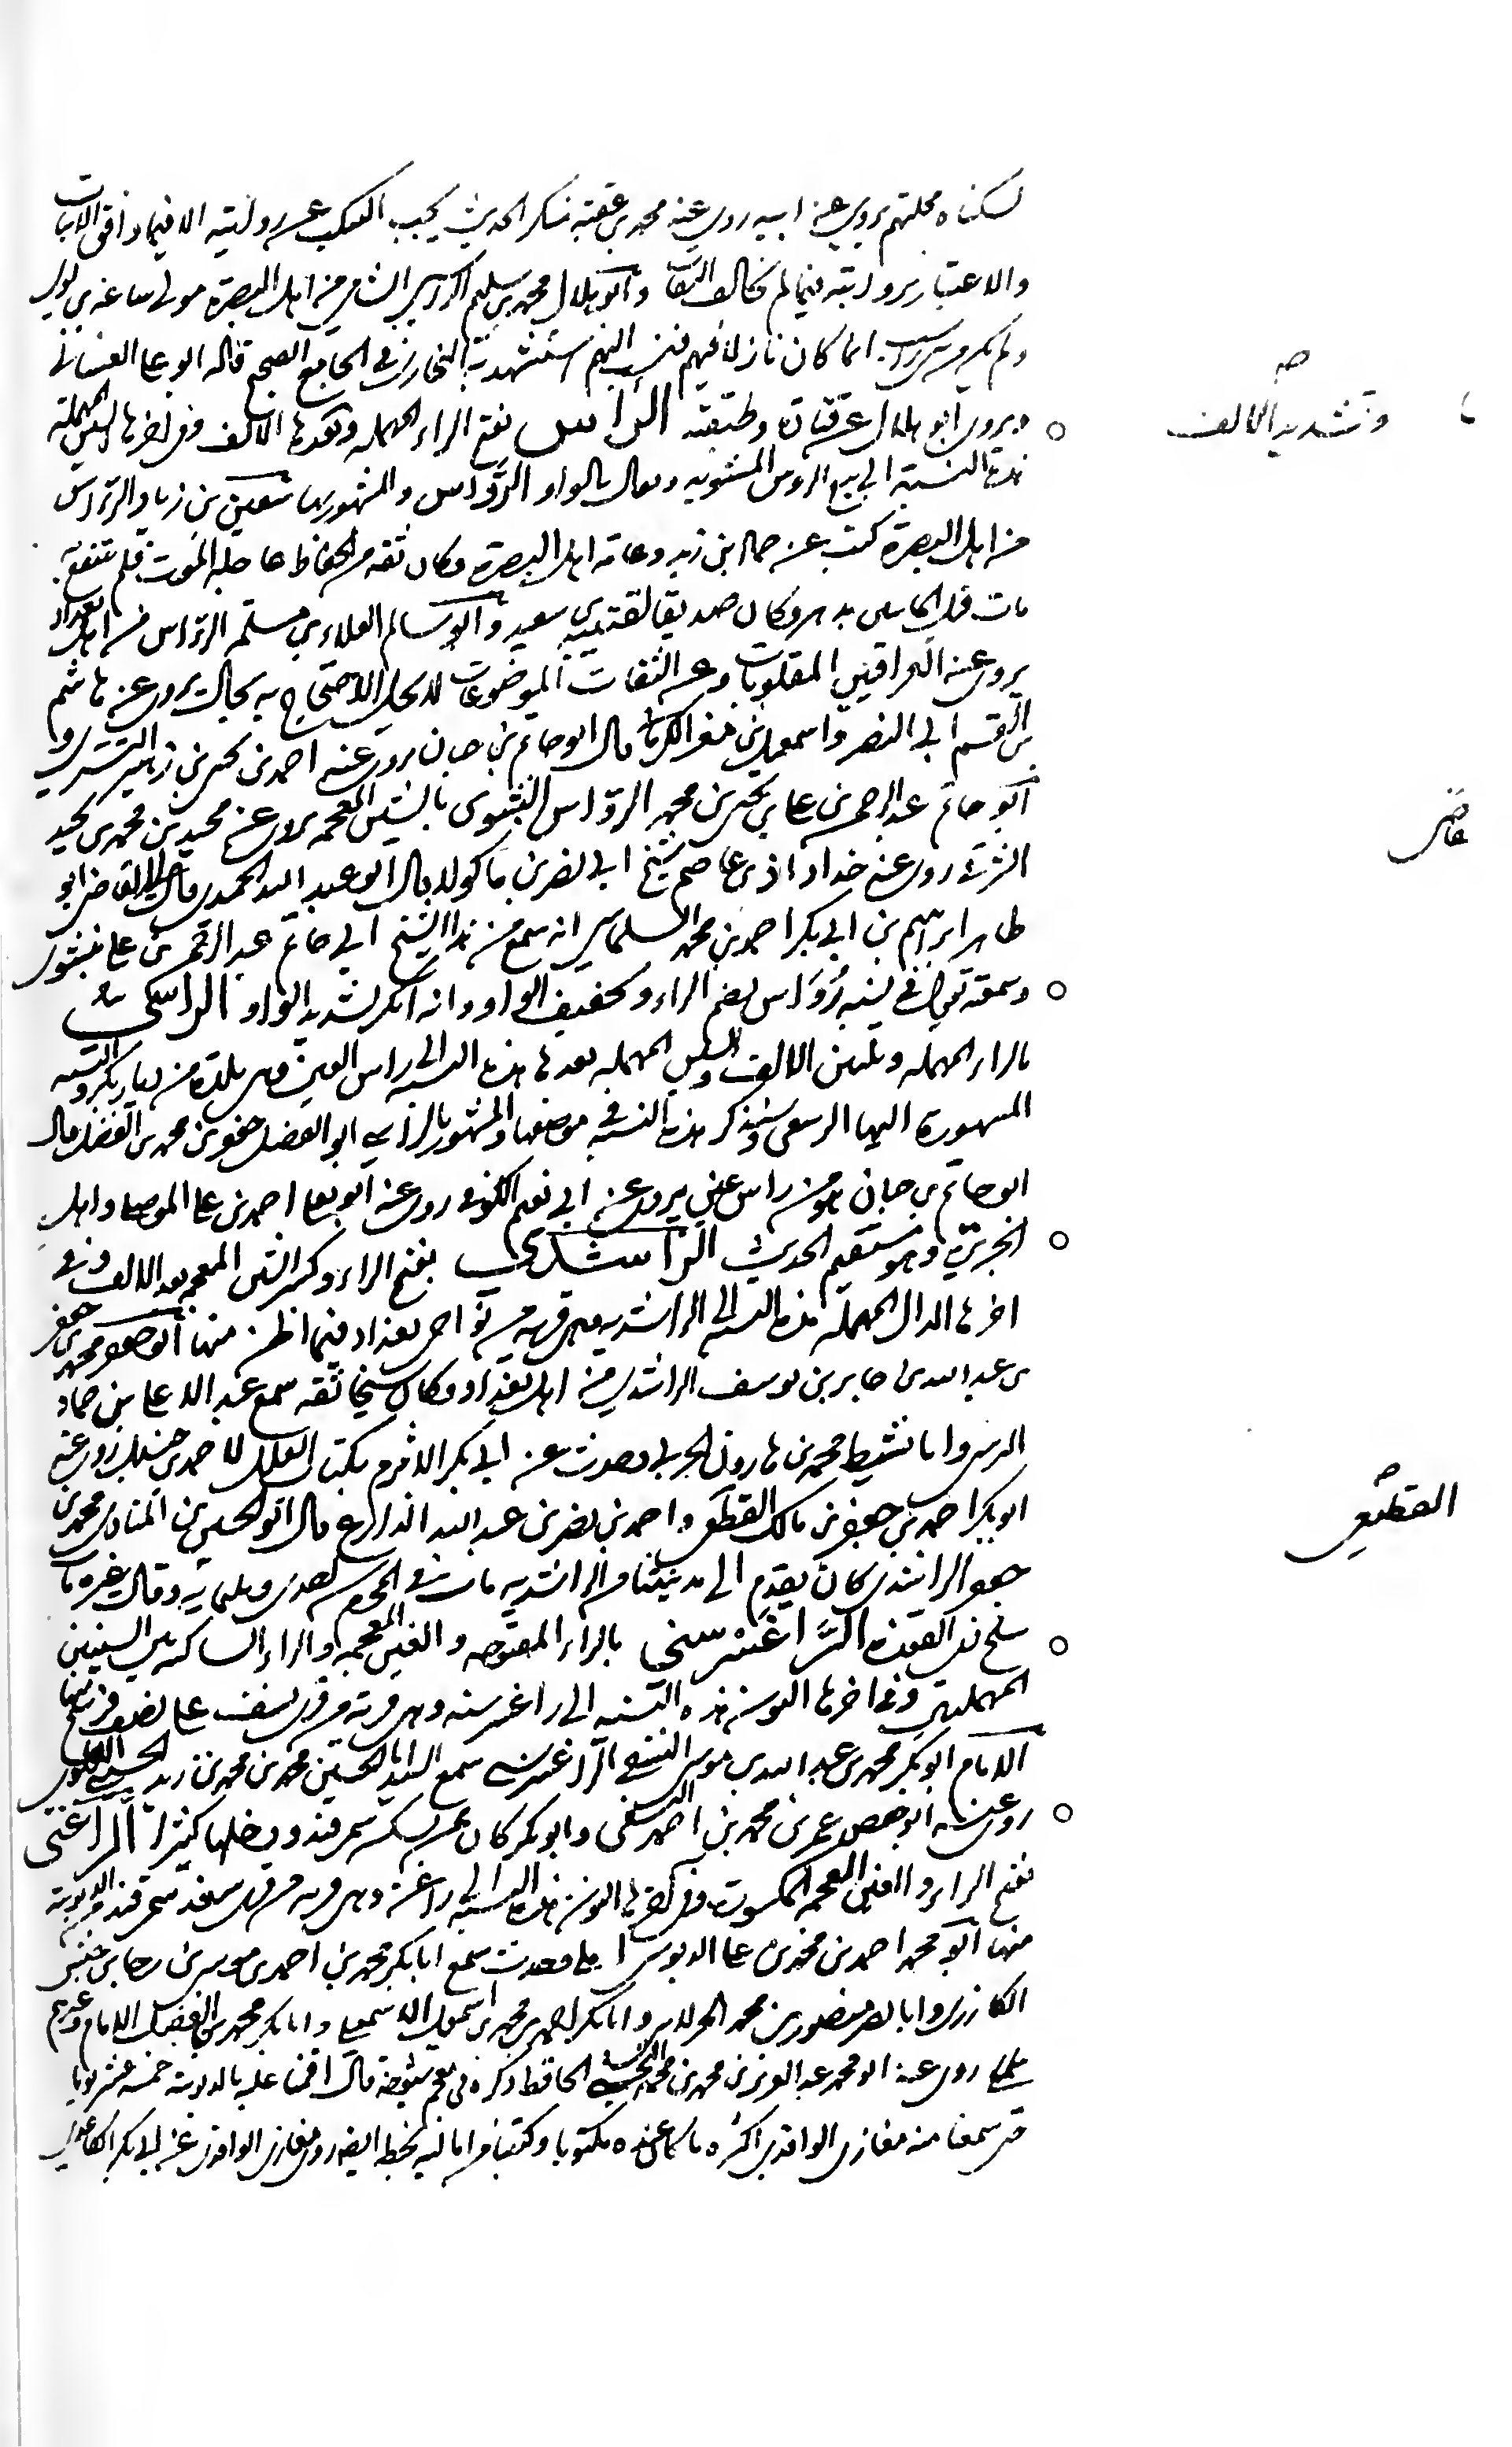 لسكناه محلتهم يروي عن ابيه روى عنه محمد بن عقبة منكر الحديث يجب التنكب عن روايته الا فيما وافق الاثبات
والاعتبار بروايته فيما لم يخالف الثقات وابو هلال محمد بن سليم الراسبي الشامي من اهل البصرة مولى سامة بن لوي
ولم يكن من بني راسب انما كان نازلا فيهم فنسب اليهم استشهد به البخاري في الجامع الصحيح قاله ابو علي الغساني
ويروي ابو هلال عن قتادة وطبقته الرأاس بفتح الراء المهملة وبعدها الالف وفي اخرها السين المهملة
وتشديد الالف
هذه النسبة الى بيع الروس المشوية ويقال بالواو الروّاس والمشهور بها شعيب بن زياد الرأاس
من اهل البصرة كتب عنه حماد بن زيد وعامة اهل البصرة وكان ثقة من الحفاظ عاجله الموت فلم ينتفع به
مات قبل وكان صديقا لقتيبة بن سعيد وابو سالم العلاء بن مسلمة الرأاس من اهل بغداد
يروي عن العراقيين المقلوبات وعن الثقات الموضوعات لا يحل الاحتجاج به بحال يروي عن هاشم
بن القسم ابي النضر واسمعيل بن الكرماني قال ابو حاتم بن حبان يروي عنه احمد بن يحيى بن زهير التستري و
ابو حاتم عبد الرحمن بن علي بن يحيى بن محمد الروّاس البشنوي بالشين المعجمة يروي عن محمد بن محمد بن
روى عنه خداداذ بن عاصم شيخ ابي نصر بن ماكولا قال ابو عبد الله الحميدي قال لنا القاضي ابو
عاصم
طاهر ابرهيم بن ابي بكر احمد بن محمد السلماسي انه سمع من هذا الشيخ ابي حاتم عبد الرحمن بن علي بنشوى
وسمعته يقول في نسبه رُوَاس بضم الراء وتخفيف الواو وانه انكر تشديد الواو الراسي
بالراء المهملة وتليين الالف والسين المهملة بعدها هذه النسبة الى راس العين وهي بلدة من ديار بكر والنسبة
المشهورة اليها الرسعني وسنذكر هذه النسبة في موضعها والمشهور بالراسي ابو الفضل جعفر بن محمد بن الفضل قال
ابو حاتم بن حبان هو من راس عين يروي عن ابي نعيم الكوفي روى عنه ابو يعلى احمد بن علي الموصلي واهل
الجزيرة وهو مستقيم الحديث الراشدي بفتح الراء وكسر الشين المعجمة بعد الالف وفي
اخرها الدال المهملة هذه النسبة الى الراشدية وهي قرية من نواحي بغداد فيما اظن منها ابو جعفر محمد بن جعفر
بن عبد الله بن جابر بن يوسف الراشدي من اهل بغداد وكان شيخا ثقة سمع عبد الاعلى بن حماد
النرسي وابا نشيط محمد بن هارون الحربي وحدث عن ابي بكر الاثرم بكتاب العلل لاحمد بن حنبل روى عنه
ابو بكر احمد بن جعفر بن مالك القطيعي واحمد بن نصر بن عبد الله الذارع قال ابو الحسين بن المنادي محمد بن
القطيعي
جعفر الراشدي كان يقدم الى مدينتنا من الراشدية مات في المحرم سنة احدى وثلثمائة وقال غيره مات
سلخ ذي القعدة الراغسرسني بالراء المفتوحة والغين المعجمة والراء الساكنة بين السينين
المهملتين وفي اخرها النون هذه النسبة الى راغسرسنه وهي قرية من قرى نسف على نصف فرسخ منها
الامام ابو بكر محمد بن عبد الله بن موسى النسفي الراغسرسني سمع السيد ابا الحسين محمد بن محمد بن زيد الحسيني العلوي
روى عنه ابو حفص عمر بن محمد بن احمد النسفي وابو بكر كان ممن يسكن سمرقند ويدخلها كثيرا الراغني
بفتح الراء والغين المعجمة المكسورة وفي اخرها النون هذه النسبة الى راغن وهي قرية من قرى سغد سمرقند من الدبوسية
منها ابو محمد احمد بن محمد بن علي الدبوسي املى وحدث سمع ابا بكر محمد بن احمد بن موسى بن رجا بن حنش
الكارزني وابا نصر منصور بن محمد وابا بكر احمد بن محمد بن اسمعيل الاسمعيلي وابا بكر محمد بن الفضل الامام وغيرهم
روى عنه ابو محمد عبد العزيز بن محمد بن محمد النخشبي الحافظ ذكره في معجم شيوخه قال اقمنا عليه بالدبوسية خمسة عشر يوما
حتى سمعنا منه مغازي الواقدي اكثره ما كان عنده مكتوبا وكتبنا من اماليه بخطه ايضا روى مغازي الواقدي عن ابي بكر